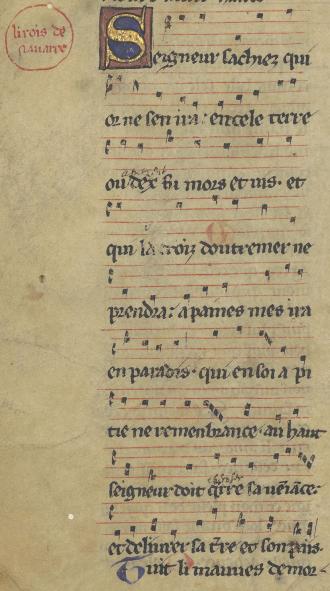 li rois de
nauarre
Seigneur sachiez qui
or ne sen ira · en cele terre
ou dex fu mors et uis · et
qui la croiz doutremer ne
prendra · a paines mes ira
en paradis · qui en soi a pi
tie ne remenbrance · au haut
seigneur doit q̃rre sa uẽiãce ·
et deliurer sa t̃re et son pais ·
Tuit li mauues demor-